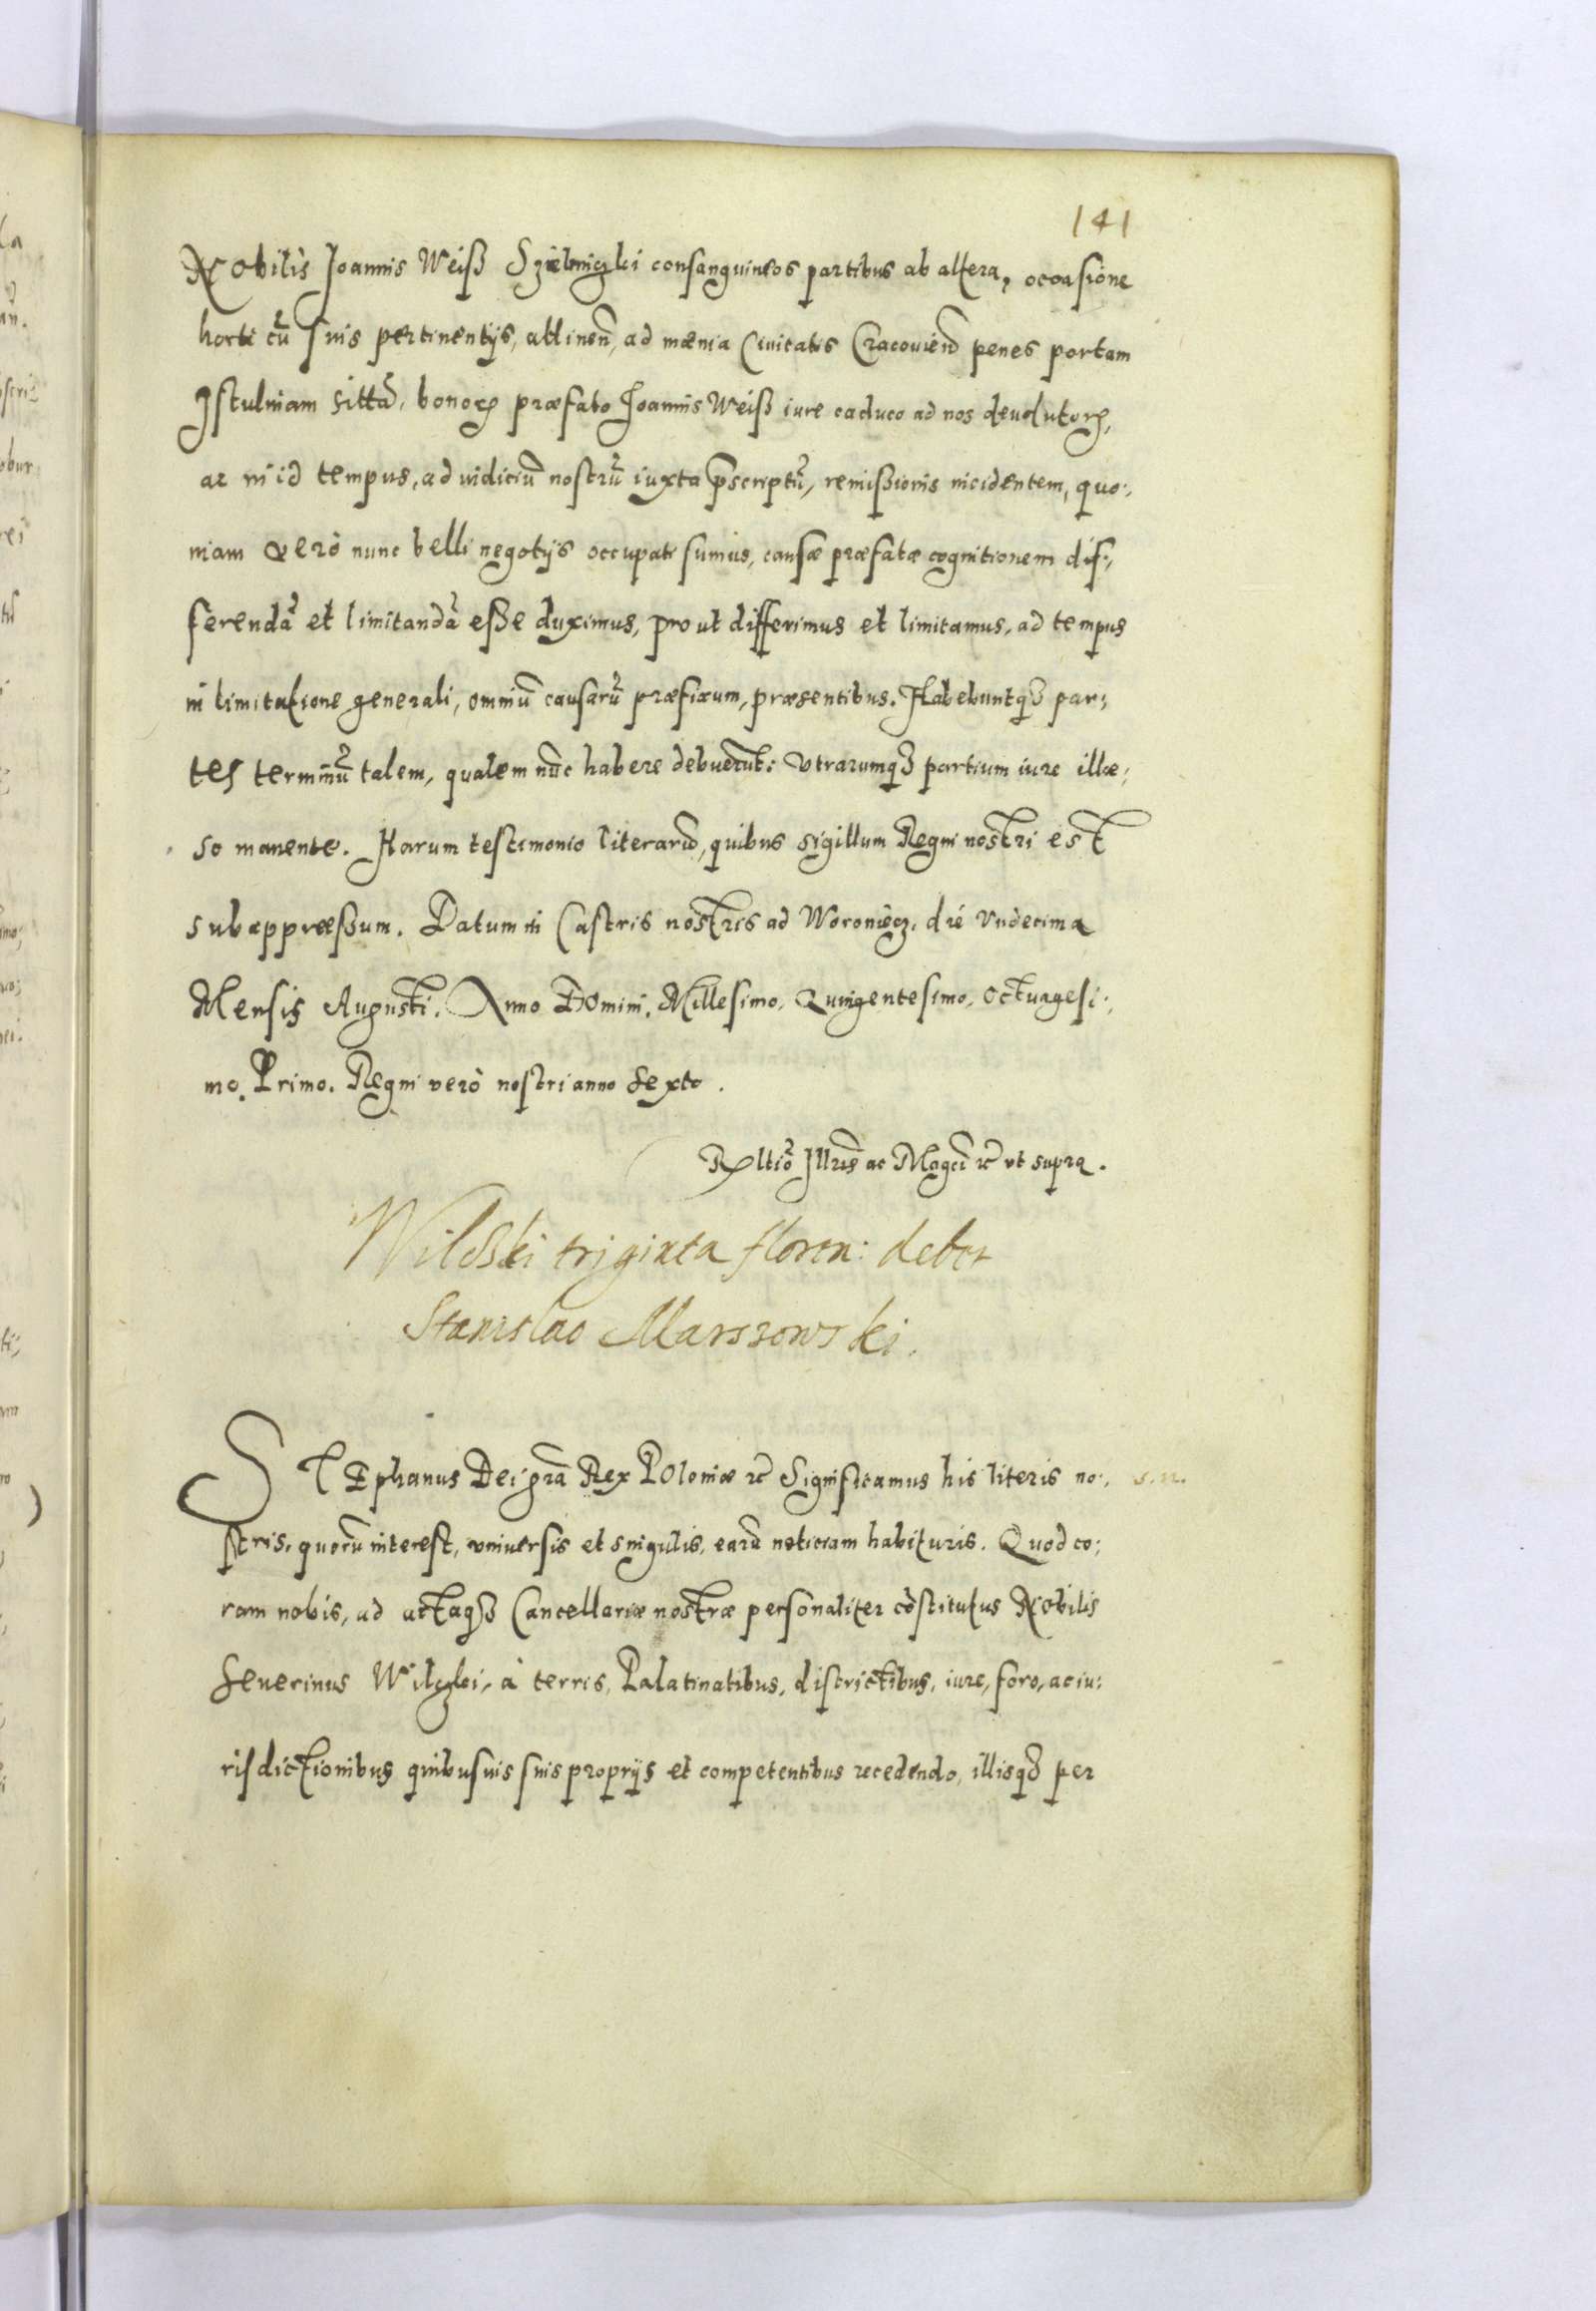 141
Nobilis Joannis Weiß consanguineos partibus ab altera, occasione
horti cū suis pertinentijs, attinen̄, ad mœnia Ciuitatis Cracouien̄ penes portam
Istulniam sittā, bonorꝫ præfato Joannis Weiß iure caduco ad nos deuolutorꝫ,
ac in id tempus, ad iudiciū nostrū iuxta p̄scriptū, remißionis incidentem, quo:,
niam verò nunc belli negotijs occupati sumus, causæ præfatæ cognitionem dif:,
ferendā et limitandā eße duximus, prout differimus et limitamus, ad tempus
in limitatione generali, omniū causarū præfixum, præsentibus. Habebuntqꝫ par:,
tes terminū talem, qualem nūc habere debuerūt: Vtrarumqꝫ partium iure illæ:,
so manente. Harum testimonio literarū, quibus sigillum Regni nostri est
subappræßum. Datum in Castris nostris ad Woroniecz, die Vndecima
Mensis Augusti. Anno Domini. Millesimo, Quingentesimo, Octuagesi:,
mo, Primo. Regni verò nostri anno Sexto.
Rltio Illris ac Magci ꝛc̄ vt supra.
Wilski triginta floren: debet
Stanislao Marszowski.
STEphanus Dei grā Rex Poloniæ ꝛc̄ Significamus his literis no:,
stris, quorū interest, vniuersis et singulis, earū noticiam habituris. Quod co:,
ram nobis, ad actaqꝫ Cancellariæ nostræ personaliter cōstitutus Nobilis
Seuerinus Wilczki, à terris, Palatinatibus, districtibus, iure, foro, ac iu:
risdictionibus quibusuis suis proprijs et competentibus recedendo, illisqꝫ per